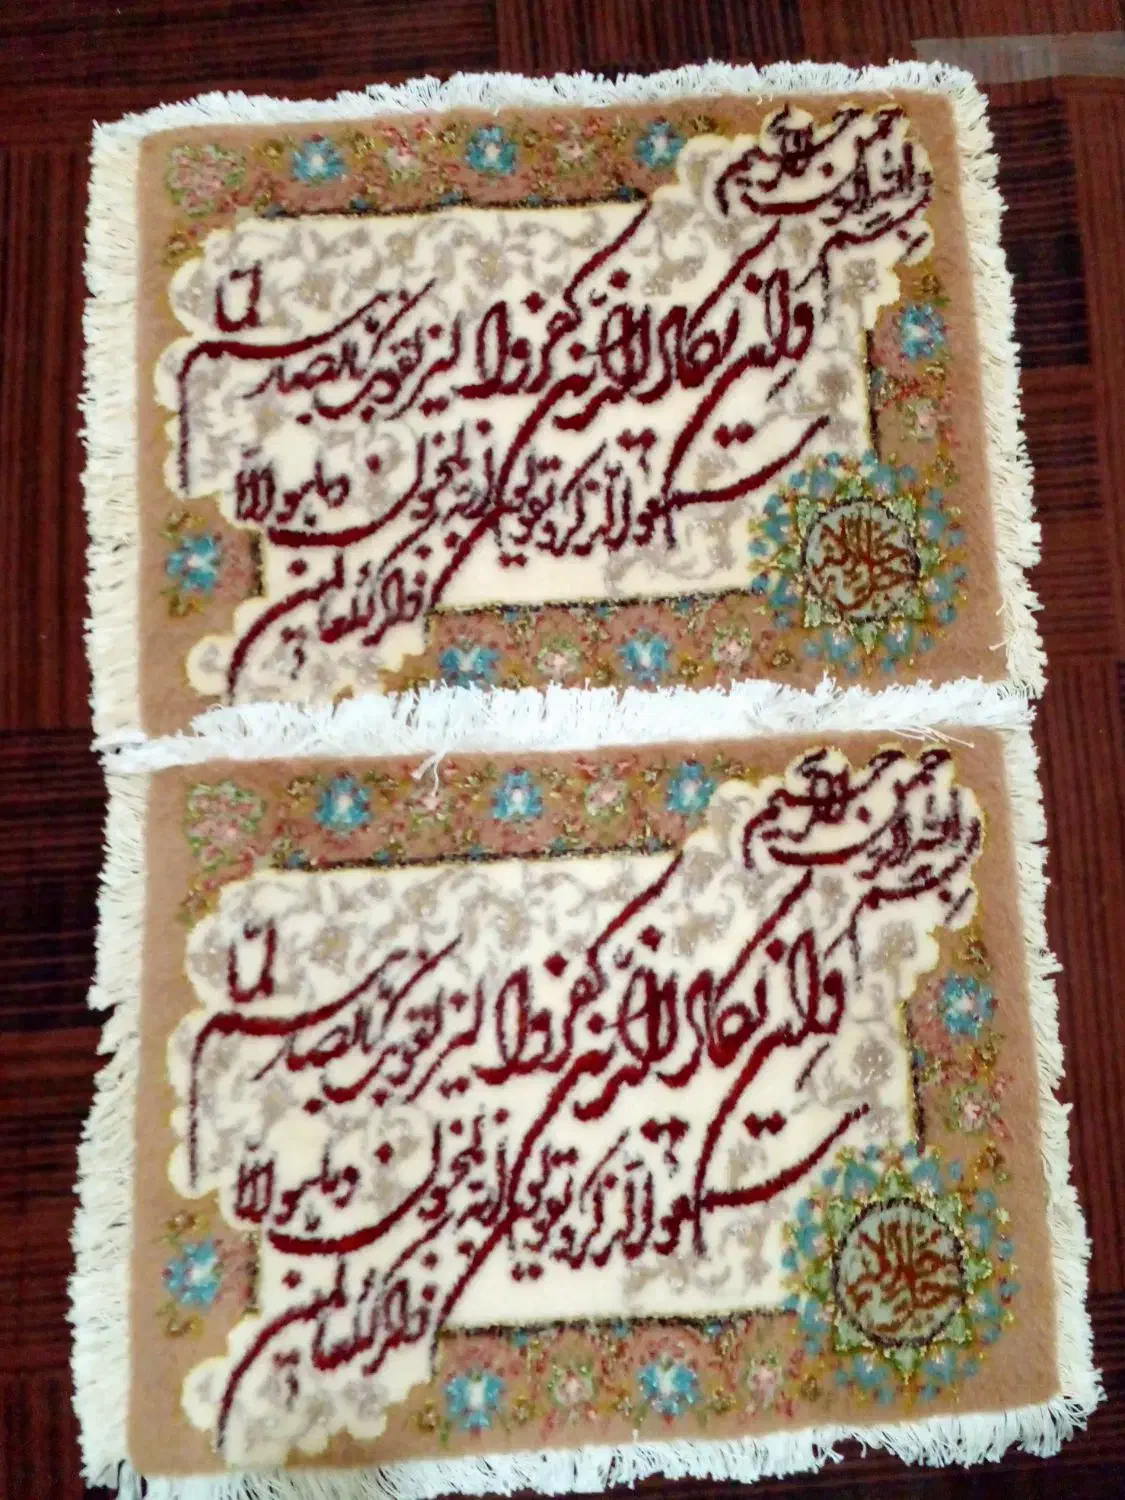 بسم الله الرحمن الرحیم
وان یکاد الذین کفروا لیزلقونک بابصارهم لما
سمعوا الذکر و یقولون انه لمجنون و ما هو الا
ذکر للعالمین
بسم الله الرحمن الرحیم
وان یکاد الذین کفروا لیزلقونک بابصارهم لما
سمعوا الذکر و یقولون انه لمجنون و ما هو الا
ذکر للعالمین